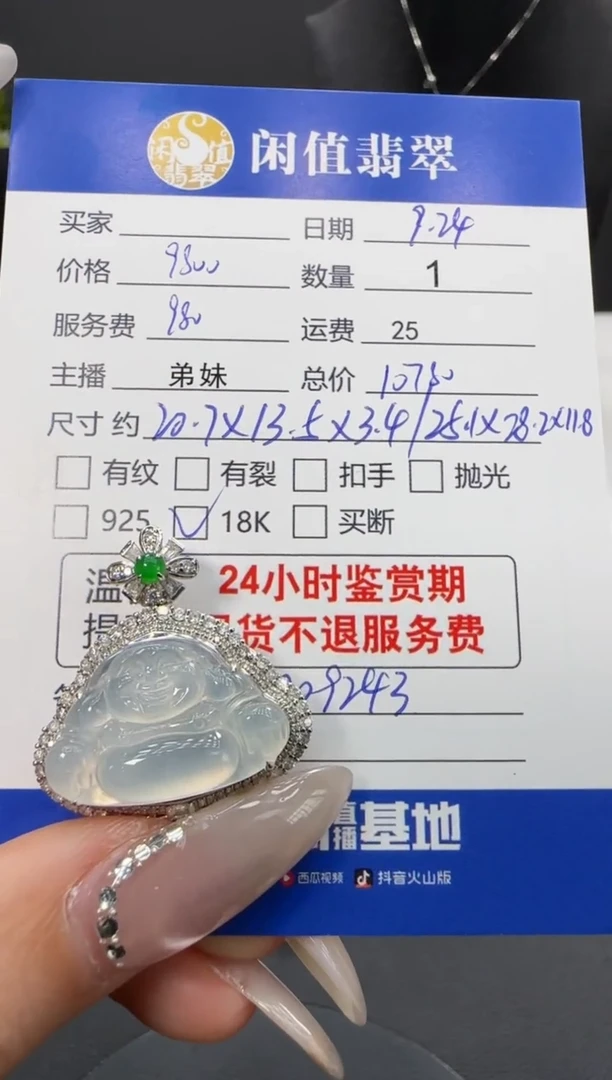 闲值翡翠
闲值翡翠
买家 日期 9.24
价格 9800 数量 1
服务费 980 运费 25
主播 弟妹 总价
尺寸 约 20.7X13.5X3.4/25.1X28.2X11.8
有纹 有裂 扣手 抛光
925 18K 买断
温 24小时鉴赏期
提 货不退服务费
09243
播基地
西瓜视频 抖音火山版